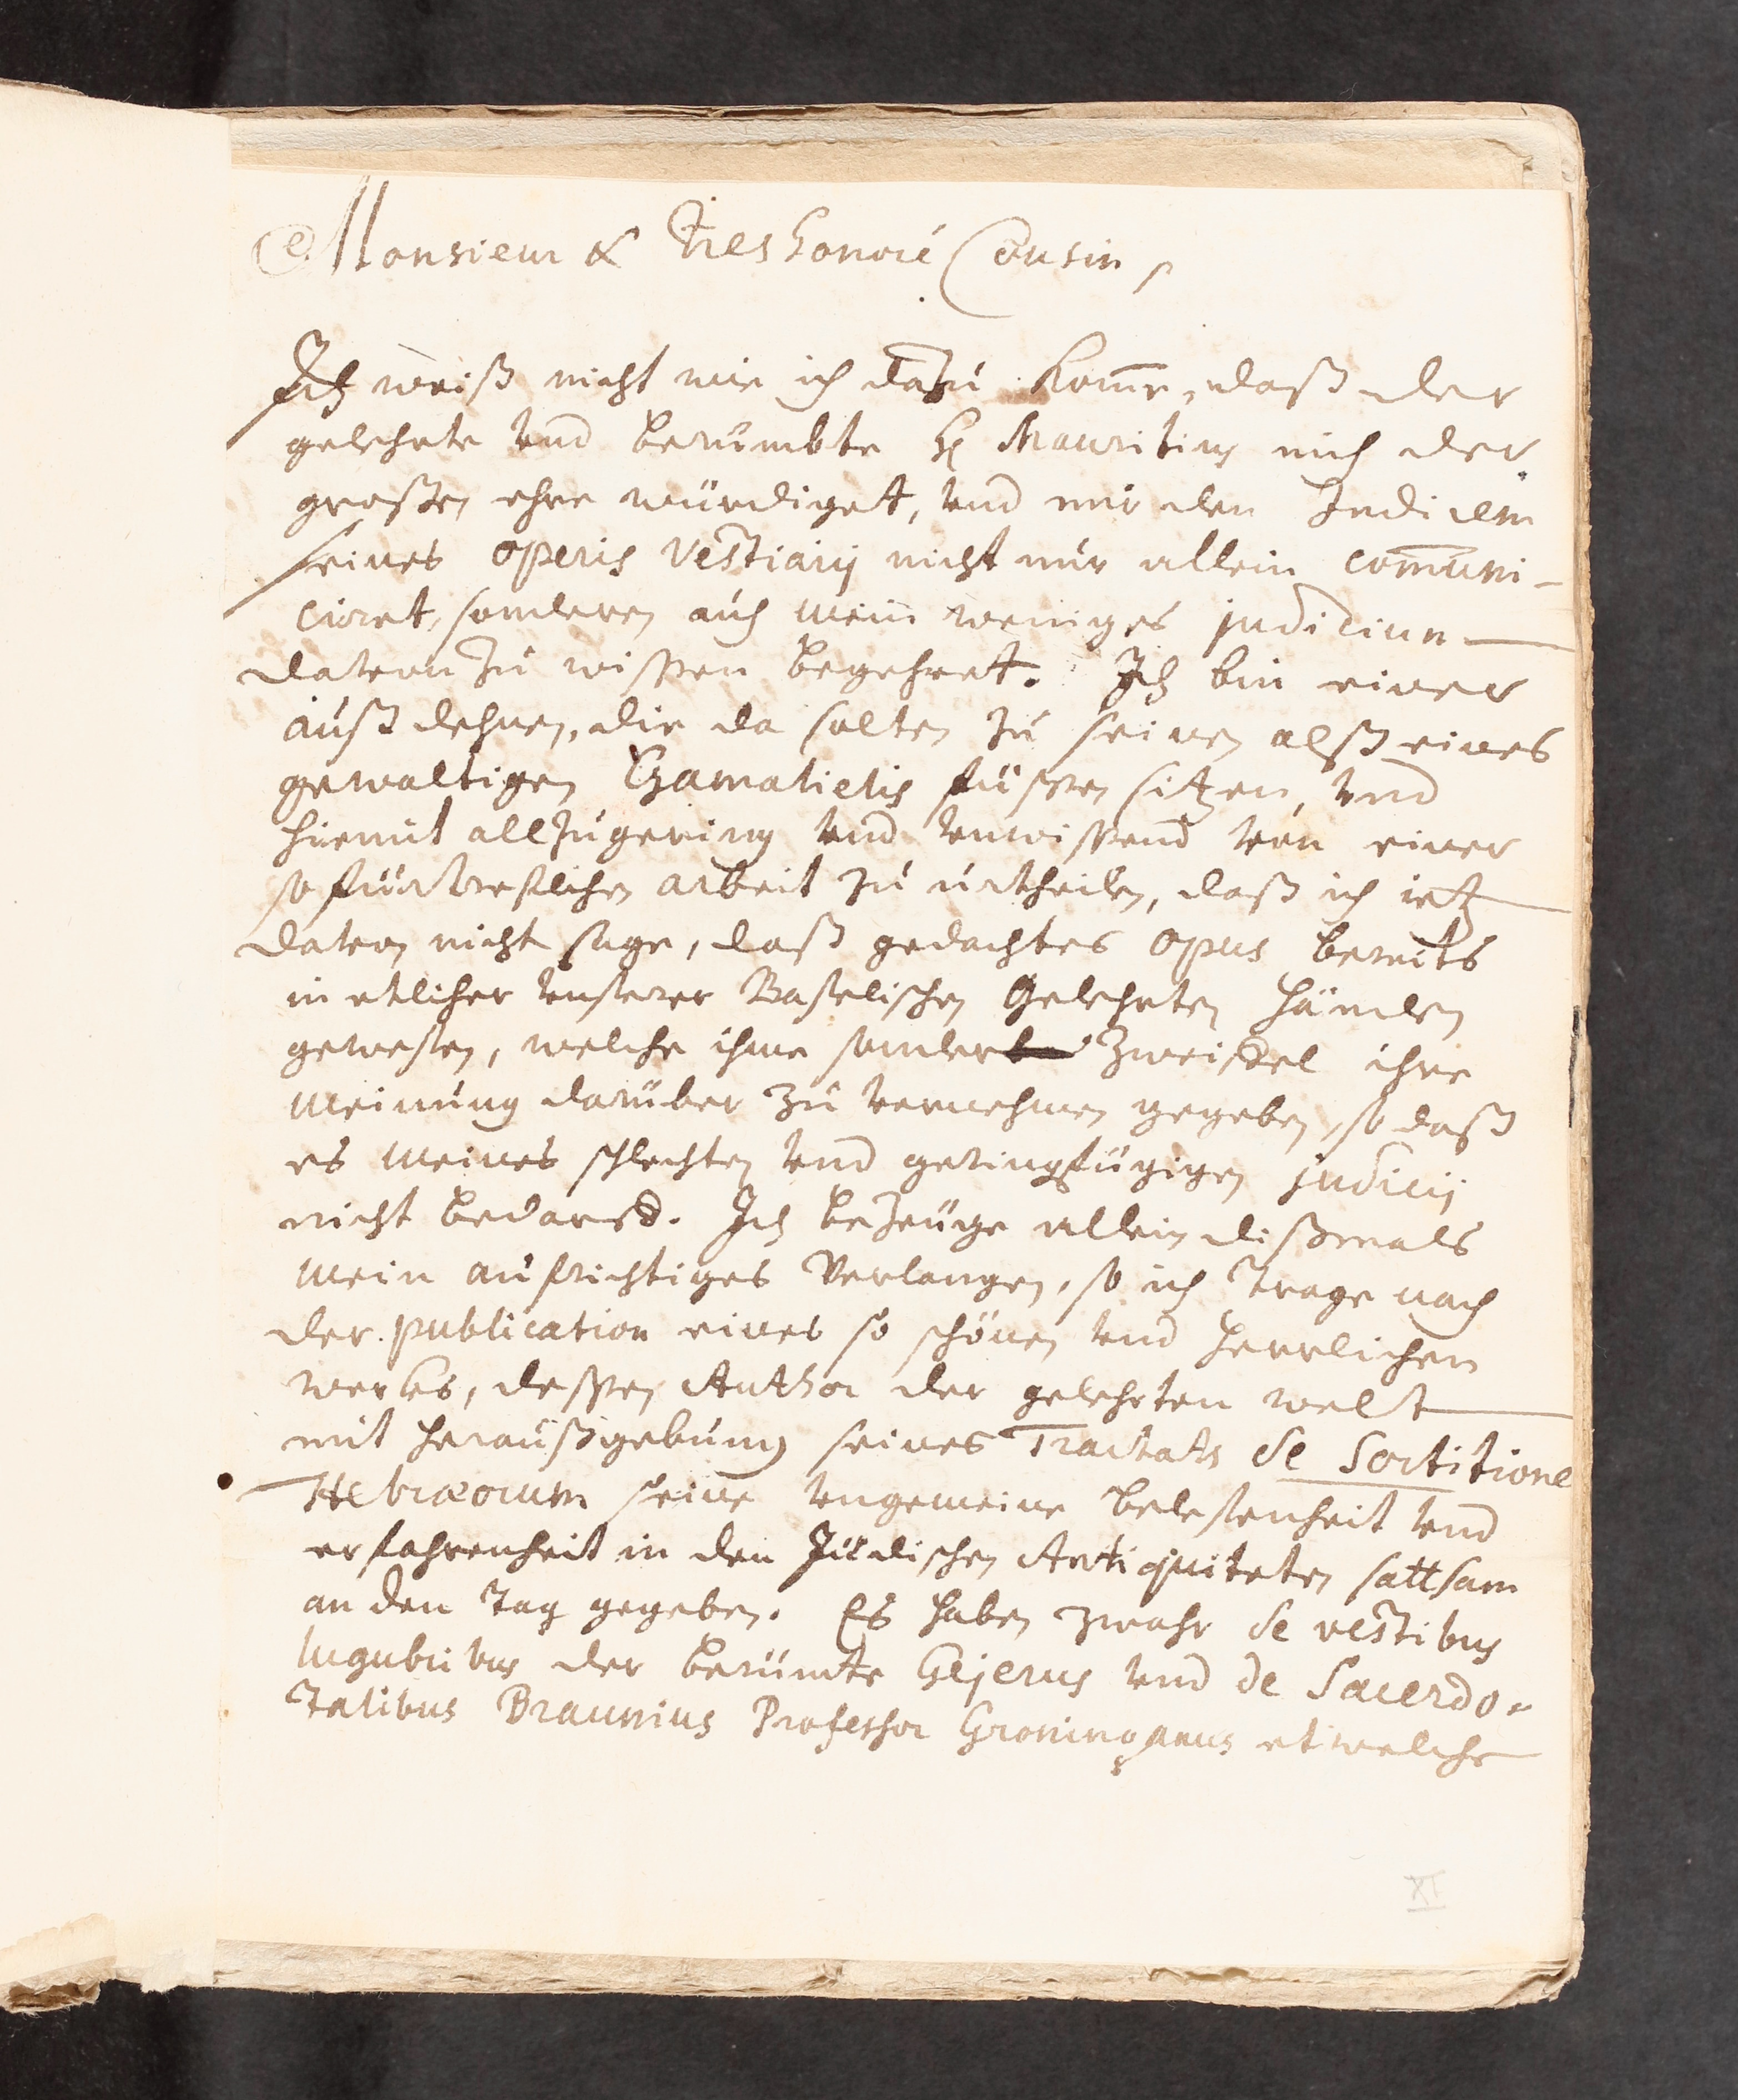 Monsieur & tres honoré Cousin,
Ich weiß nicht wie ich dazu komme, daß der
gelehrte vnd berümbte H Mauritius mich der
großen ehre würdiget, vnd mir den Indicem
seines operis Vestiarij nicht nur allein com̅uni-
ciret, sonderen auch mein weniges judicium
darvon zu wissen begehret. Ich bin einer
auß dehnen, die da solten zu seinen alß eines
gewaltigen Gamalielis füssen sitzen, vnd
hiemit allzugering vnd vnwissend von einer
so fürtrefflichen arbeit zu urtheilen, daß ich ietz
darvon nicht sage, daß gedachtes opus bereits
in etlicher vnserer Baselischen Gelehrten händen
gewesen, welche ihme sonder Zweiffel ihre
meinung darüber zu vernehmen gegeben, so daß
es meines schlechten vnd geringfügigen judicij
nicht bedarff. Ich bezeüge allein dißmals
mein aufrichtiges Verlangen, so ich trage nach
der publication eines so schönen vnd herrlichen
werkes, dessen Author der gelehrten welt
mit heraußgebung seines Tractats de Sortitione
Hebræorum seine vngemeine belesenheit vnd
erfahrenheit in den Jüdischen Antiquiteten sattsam
an den Tag gegeben. Es haben zwahr de vestibus
lugubribus der berümte Gejerus vnd de Sacerdo-
talibus Braunius Professor Groninganus etwelche
XI